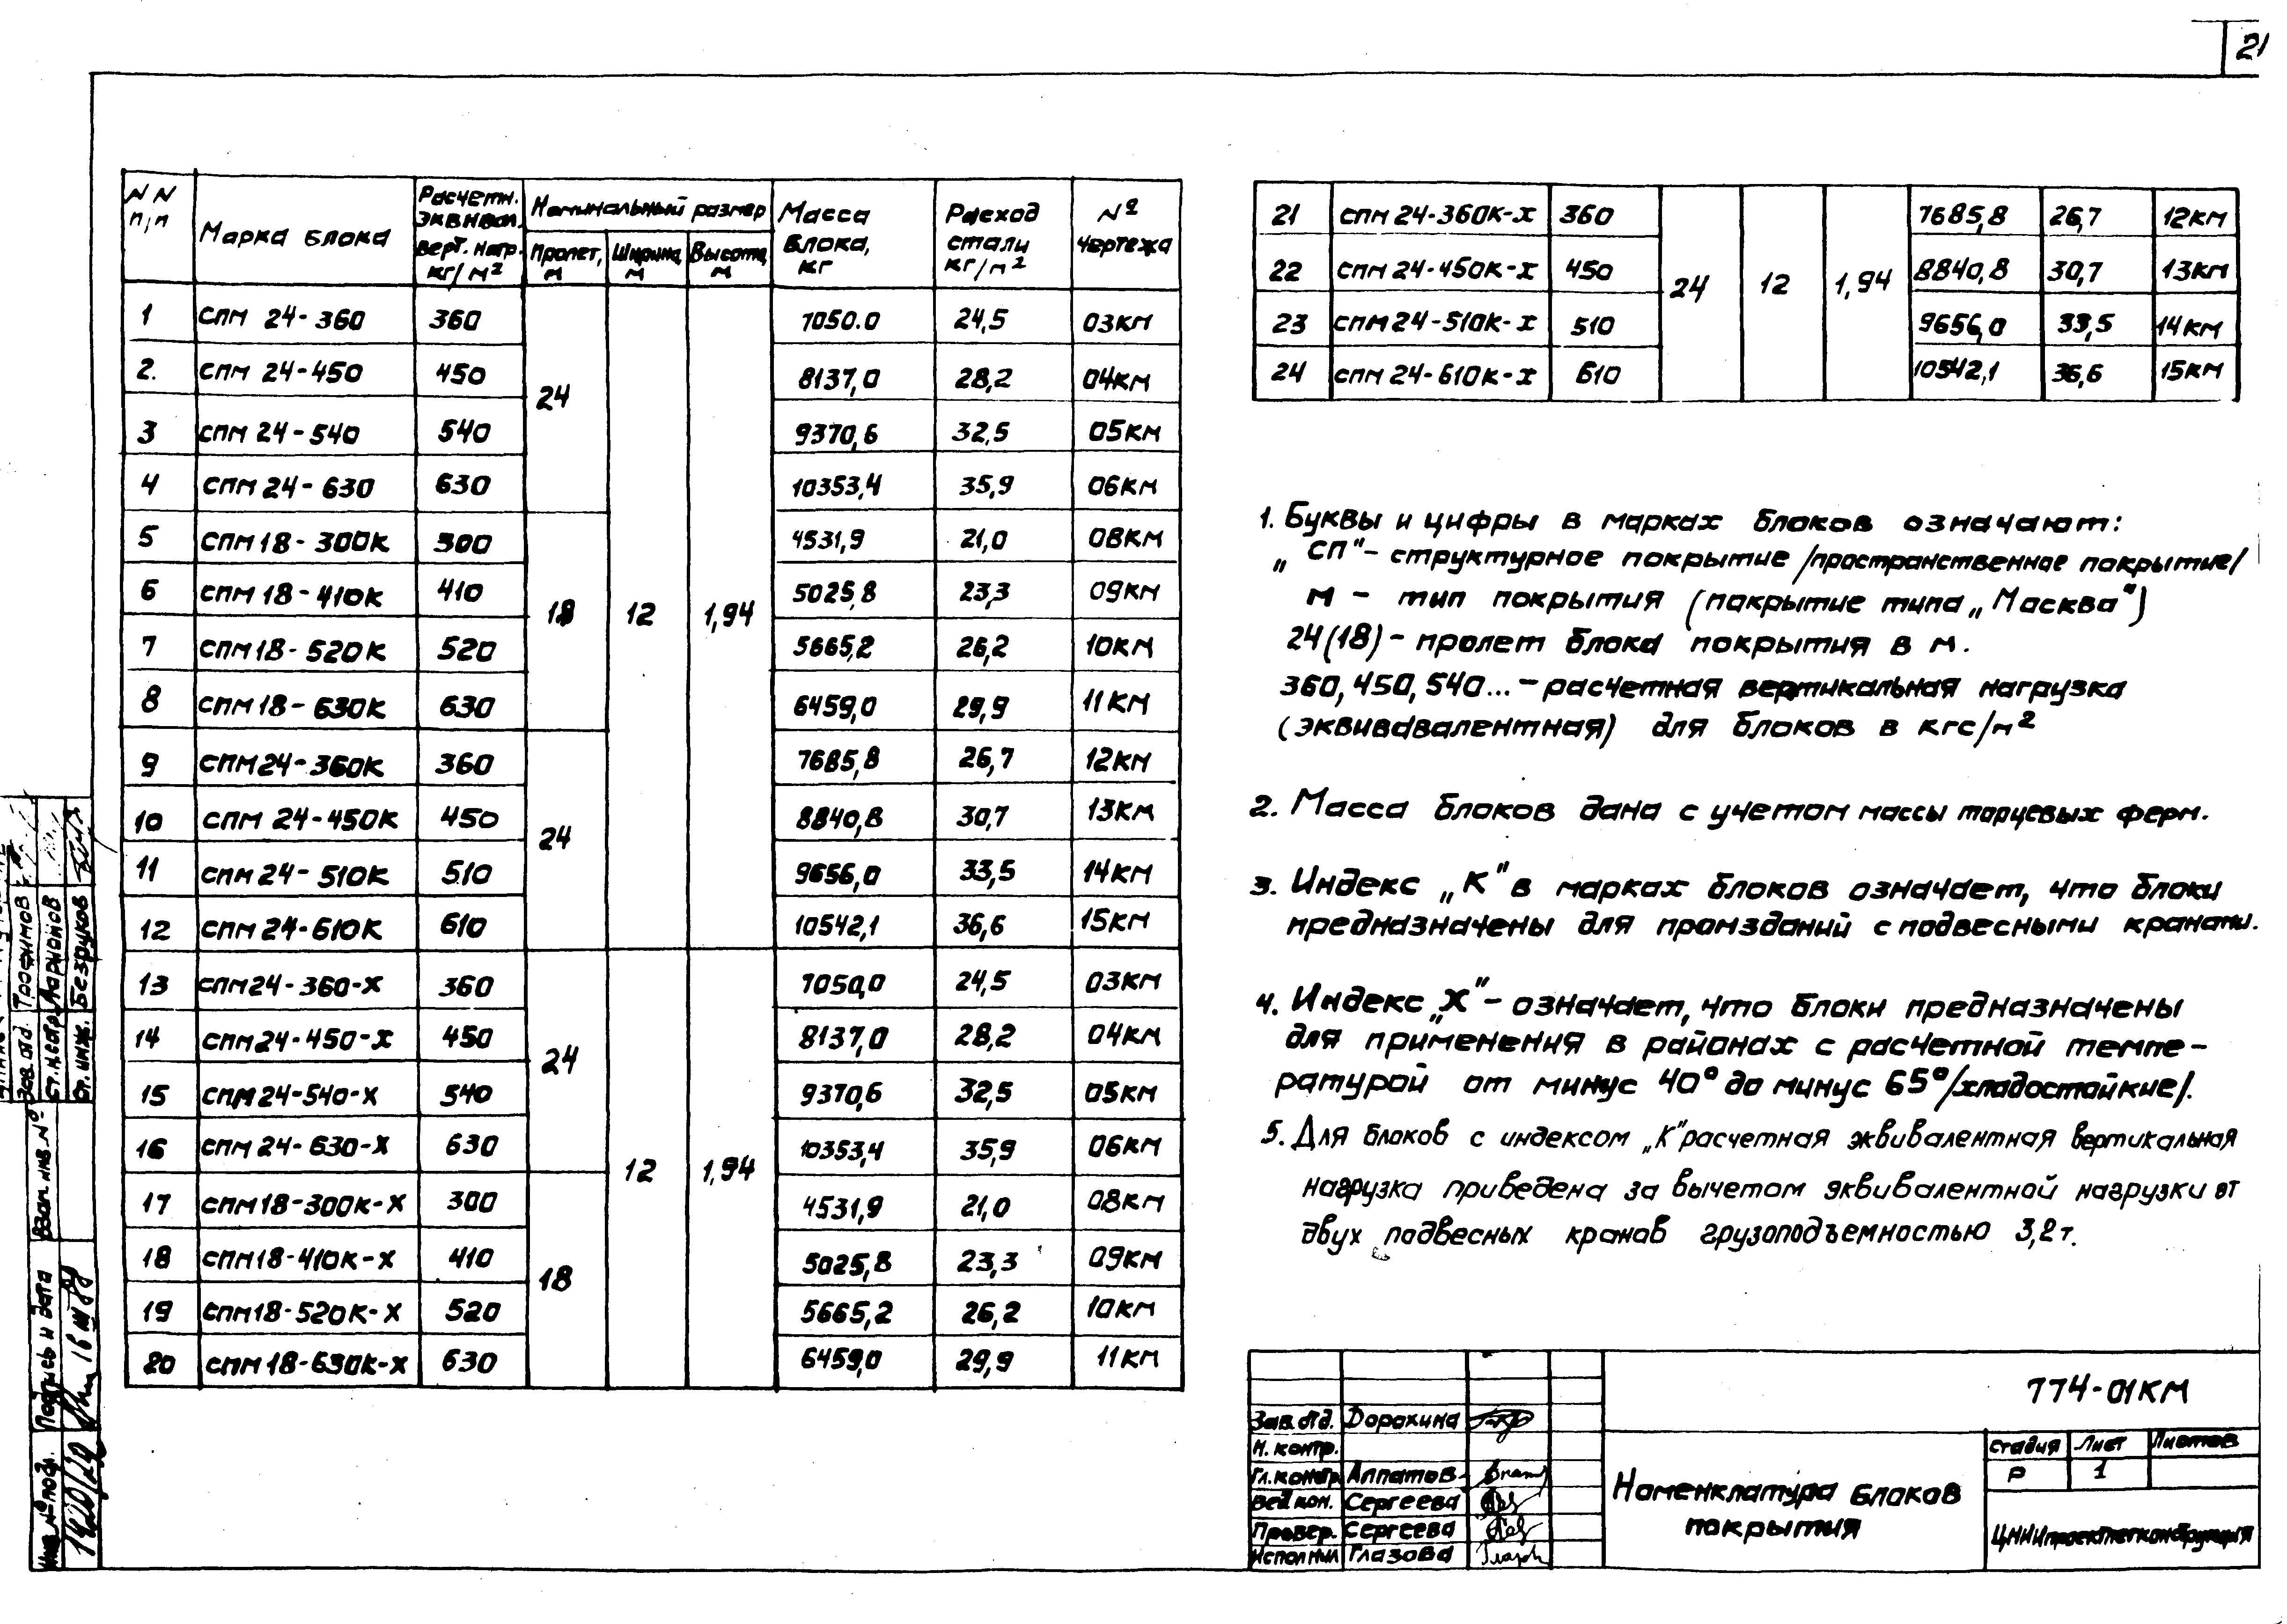 21
NN п/п
Марка блока
Расчетн. эквивал. верт. нагр. кг/м²
Номинальный размер
Пролет, м
Ширина, м
Высота, м
Масса блока, кг
Расход стали кг/м²
№ чертежа
1 СПМ 24-360 360 24 12 1,94 7050.0 24,5 03КМ
2. СПМ 24-450 450 8137,0 28,2 04КМ
3 СПМ 24-540 540 9370,6 32,5 05КМ
4 СПМ 24-630 630 10353,4 35,9 06КМ
5 СПМ 18-300К 300 18 4531,9 21,0 08КМ
6 СПМ 18-410К 410 5025,8 23,3 09КМ
7 СПМ 18-520К 520 5665,2 26,2 10КМ
8 СПМ 18-630К 630 6459,0 29,9 11КМ
9 СПМ 24-360К 360 24 7685,8 26,7 12КМ
10 СПМ 24-450К 450 8840,8 30,7 13КМ
11 СПМ 24-510К 510 9656,0 33,5 14КМ
12 СПМ 24-610К 610 10542,1 36,6 15КМ
13 СПМ 24-360-Х 360 24 12 1,94 7050,0 24,5 03КМ
14 СПМ 24-450-Х 450 8137,0 28,2 04КМ
15 СПМ 24-540-Х 540 9370,6 32,5 05КМ
16 СПМ 24-630-Х 630 10353,4 35,9 06КМ
17 СПМ 18-300К-Х 300 18 4531,9 21,0 08КМ
18 СПМ 18-410К-Х 410 5025,8 23,3 09КМ
19 СПМ 18-520К-Х 520 5665,2 26,2 10КМ
20 СПМ 18-630К-Х 630 6459,0 29,9 11КМ
21 СПМ 24-360К-Х 360 24 12 1,94 7685,8 26,7 12КМ
22 СПМ 24-450К-Х 450 8840,8 30,7 13КМ
23 СПМ 24-510К-Х 510 9656,0 33,5 14КМ
24 СПМ 24-610К-Х 610 10542,1 36,6 15КМ
1. Буквы и цифры в марках блоков означают:
„СП"- структурное покрытие /пространственное покрытие/
М - тип покрытия (покрытие типа „Москва")
24(18) - пролет блока покрытия в м.
360, 450, 540... - расчетная вертикальная нагрузка
(эквивавалентная) для блоков в кгс/м²
2. Масса блоков дана с учетом массы торцевых ферм.
3. Индекс „К" в марках блоков означает, что блоки
предназначены для промзданий с подвесными кранами.
4. Индекс „Х" - означает, что блоки предназначены
для применения в районах с расчетной темпе-
ратурой от минус 40° до минус 65° /хладостойкие/.
5. Для блоков с индексом „К" расчетная эквивалентная вертикальная
нагрузка приведена за вычетом эквивалентной нагрузки от
двух подвесных кранов грузоподъемностью 3,2т.
774-01КМ
Зав. отд. Дорохина
Н. контр.
Гл. констр. Алпатов
Вед. кон. Сергеева
Провер. Сергеева
Исполнил Глазова
Номенклатура блоков
покрытия
Стадия Лист Листов
Р 1
ЦНИИпроектлегконструкция
Зав. отд. Трофимов
Ст. н. сотр. Ларионов
Ст. инж. Безруков
Взам. инв. №
Подпись и дата
Инв. № подл.